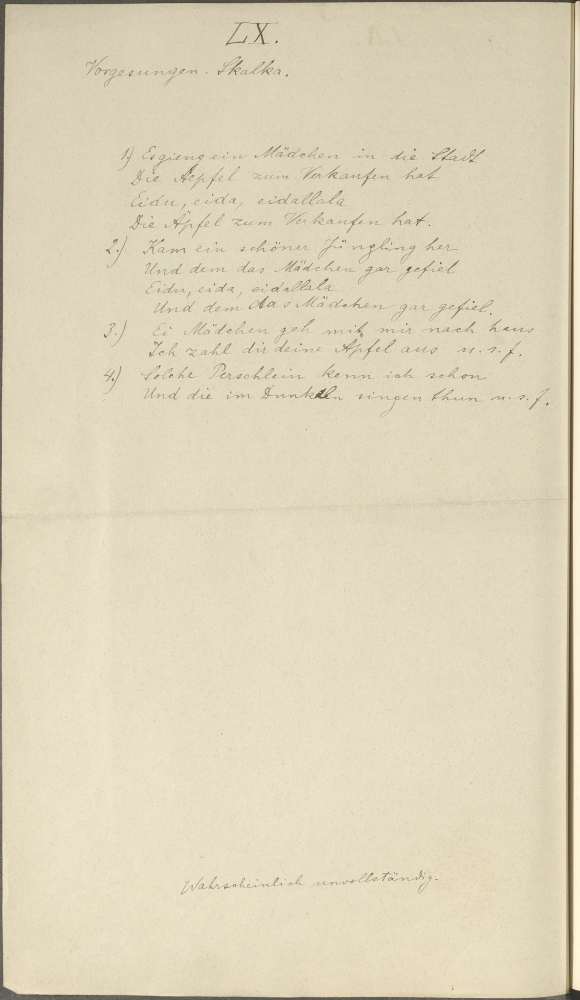 LX.
Vorgesungen. Skalka.
1) Es gieng ein Mädchen in die Stadt
Die Aepfel zum Verkaufen hat
Eidu, eida, eidallala
Die Äpfel zum Verkaufen hat.
2.) Kam ein schöner Jüngling her
Und dem das Mädchen gar gefiel
Eidu, eida, eidallala
Und dem das Mädchen gar gefiel.
3.) Ei Mädchen geh mit mir nach haus
Ich zahl dir deine Äpfel aus u. s. f.
4.) Solche Perschlein kenn ich schon
Und die im Dunkeln singen thun u. s. f.
Wahrscheinlich unvollständig.